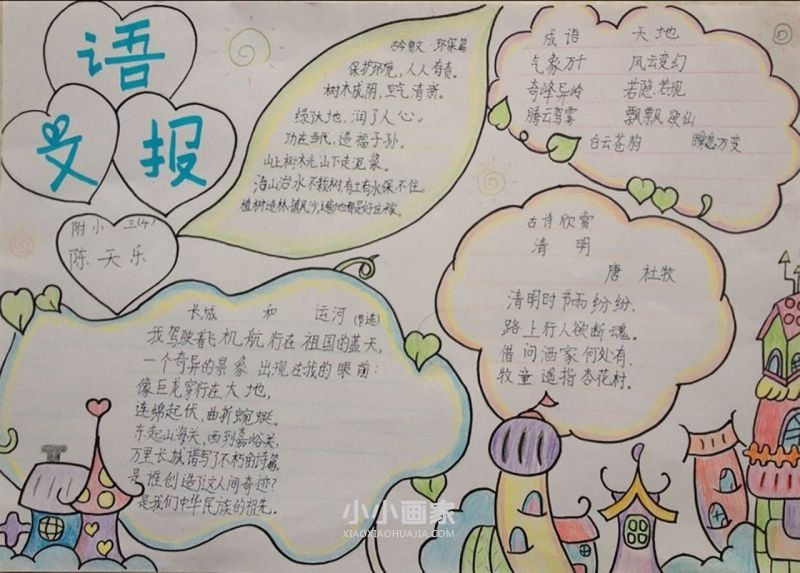 语
文 报
附小 三(4)
陈天乐
古今散文·环保篇
保护环境,人人有责。
树木成阴,空气清新。
绿沃地,润了人心。
功在当代,造福子孙。
山上树木光,山下走泥浆。
治山治水不栽树,有土有水保不住。
植树造林,遍地都是好庄稼。
成语 天地
气象万千 风云变幻
奇峰异岭 若隐若现
腾云驾雾 飘飘欲仙
白云苍狗 瞬息万变
古诗欣赏
清 明
唐 杜牧
清明时节雨纷纷,
路上行人欲断魂。
借问酒家何处有,
牧童遥指杏花村。
长城 和 运河(节选)
我驾驶着飞机航行在祖国的蓝天,
一个奇异的景象出现在我的眼前:
像巨龙穿行在大地,
连绵起伏,曲折蜿蜒。
东起山海关,西到嘉峪关,
万里长城谱写了不朽的诗篇。
是谁创造了这人间奇迹?
是我们中华民族的祖先。
小小画家
XIAOXIAOHUAJIA.COM